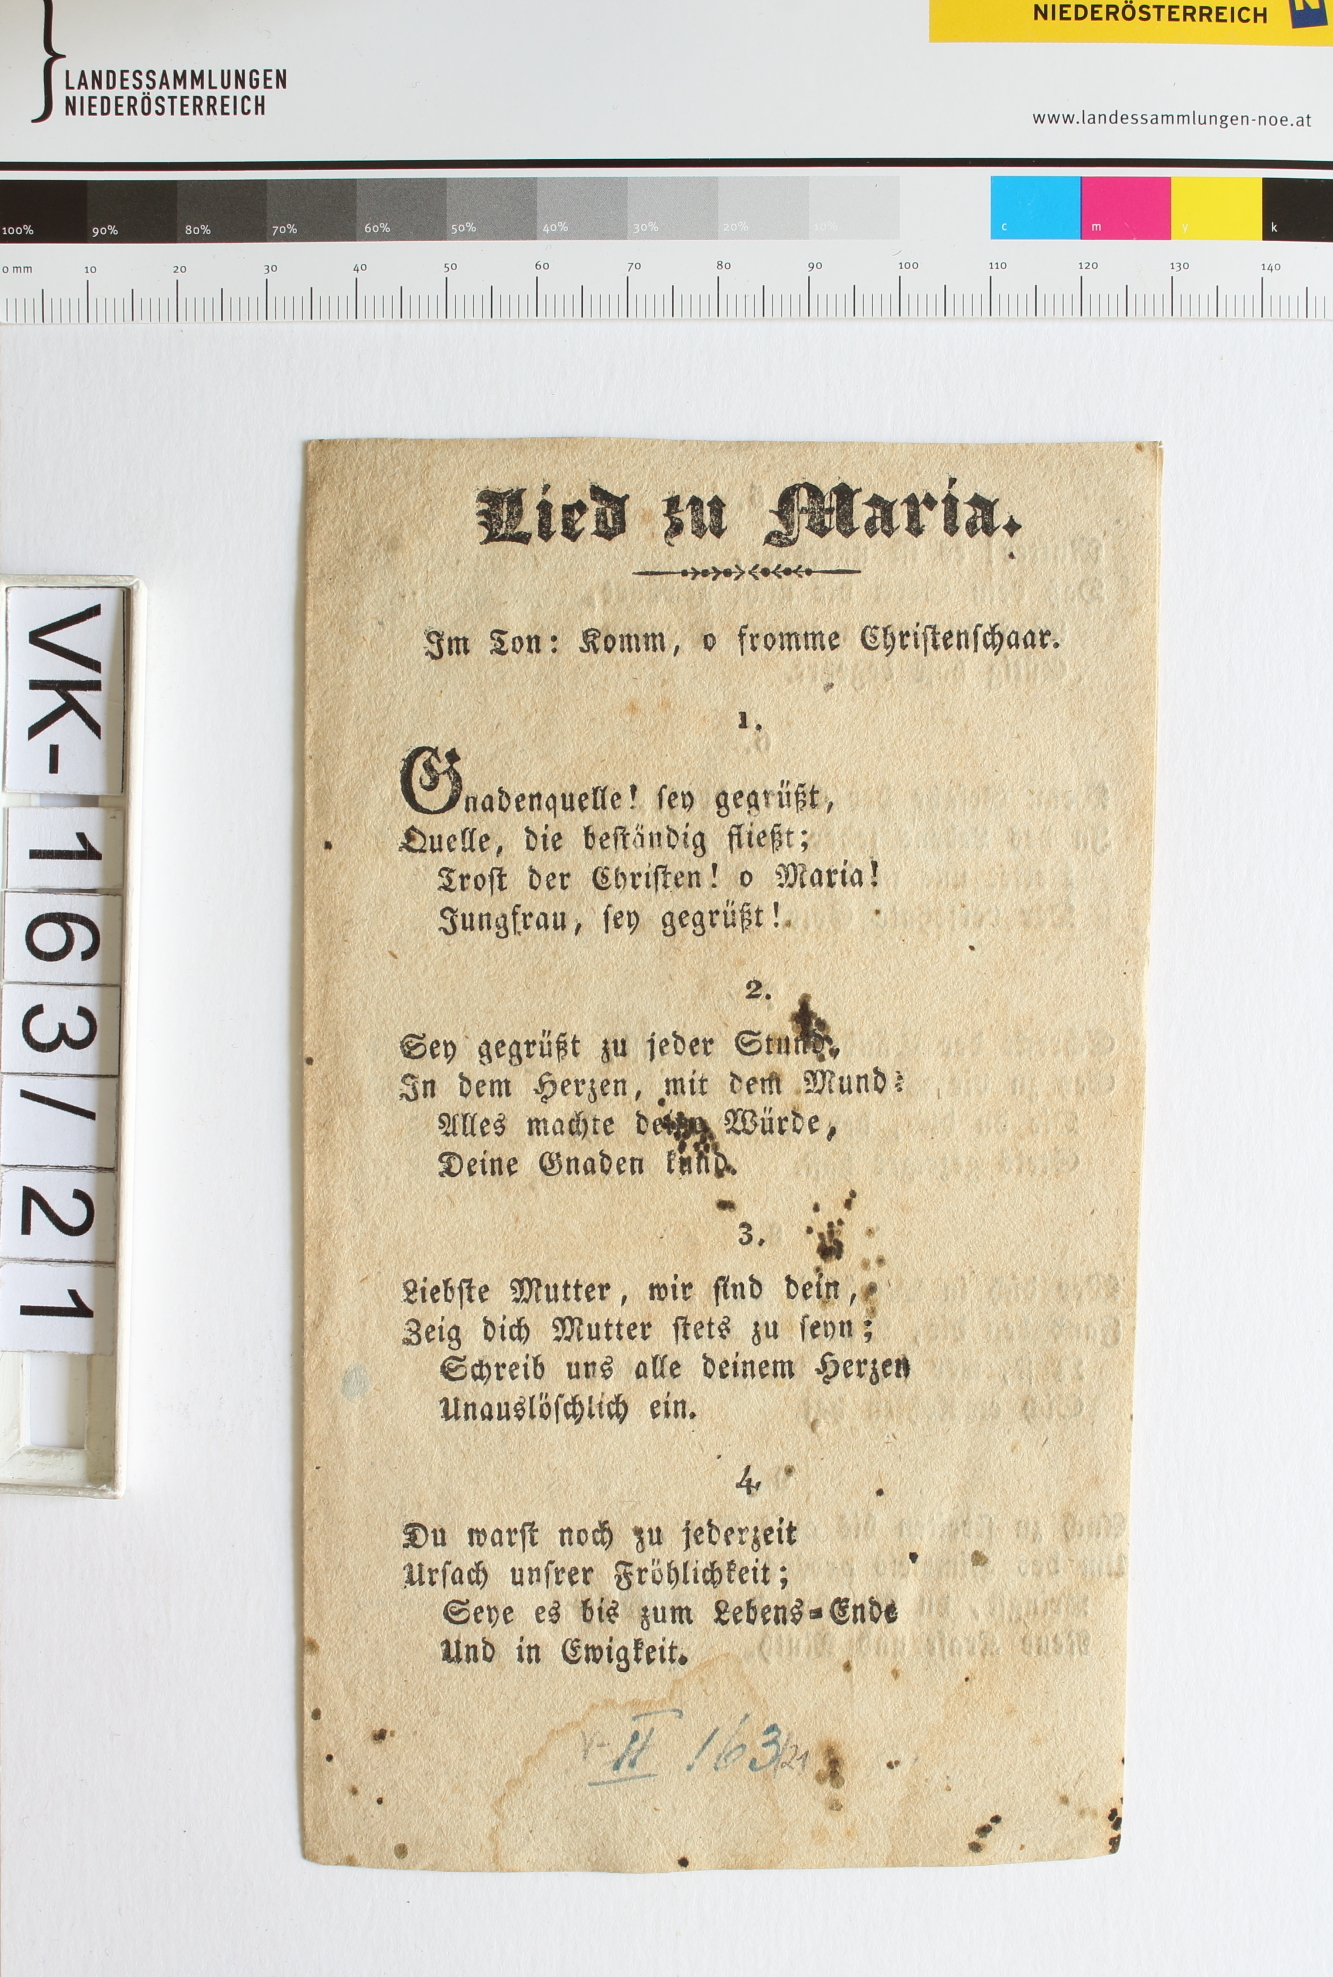 NIEDERÖSTERREICH
LANDESSAMMLUNGEN
NIEDERÖSTERREICH
www.landessammlungen-noe.at
100% 90% 80% 70% 60% 50% 40% 30% 20% 10% c m y k
0 mm 10 20 30 40 50 60 70 80 90 100 110 120 130 140
VK-163/21
Lied zu Maria.
Im Ton: Komm, o fromme Chriſtenſchaar.
1.
Gnadenquelle! ſey gegrüßt,
Quelle, die beſtändig fließt;
Troſt der Chriſten! o Maria!
Jungfrau, ſey gegrüßt!
2.
Sey gegrüßt zu jeder Stund,
In dem Herzen, mit dem Mund:
Alles machte deine Würde,
Deine Gnaden kund.
3.
Liebſte Mutter, wir ſind dein,
Zeig dich Mutter ſtets zu ſeyn;
Schreib uns alle deinem Herzen
Unauslöſchlich ein.
4.
Du warſt noch zu jederzeit
Urſach unſrer Fröhlichkeit;
Seye es bis zum Lebens=Ende
Und in Ewigkeit.
V-II 163/21